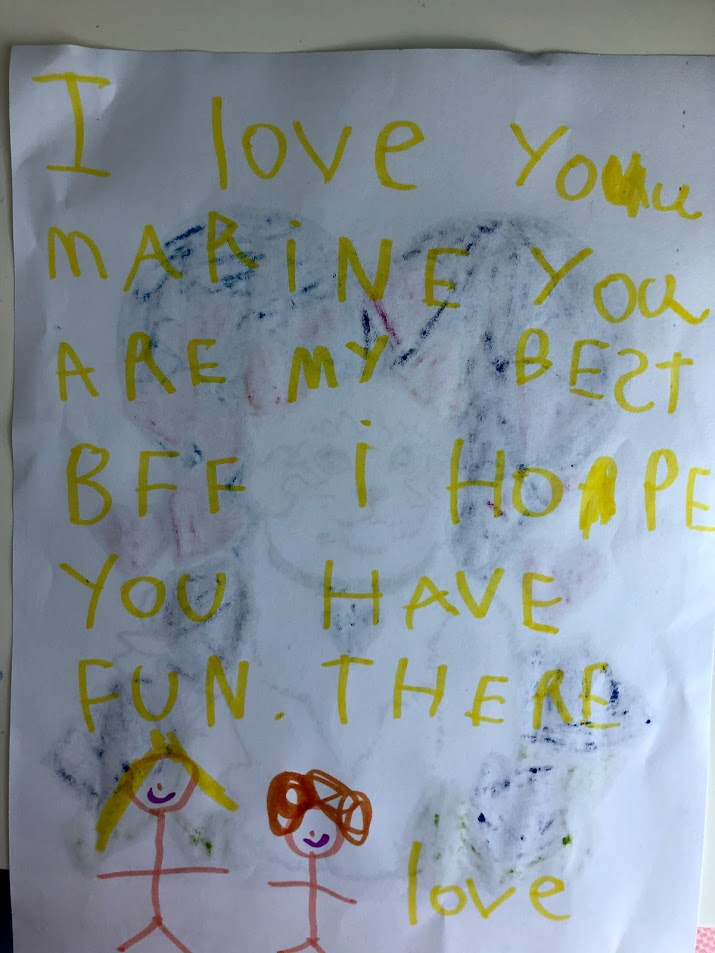 I love you
MARINE You
ARE MY BEST
BFF i HOPE
YOU HAVE
FUN. THERE
love